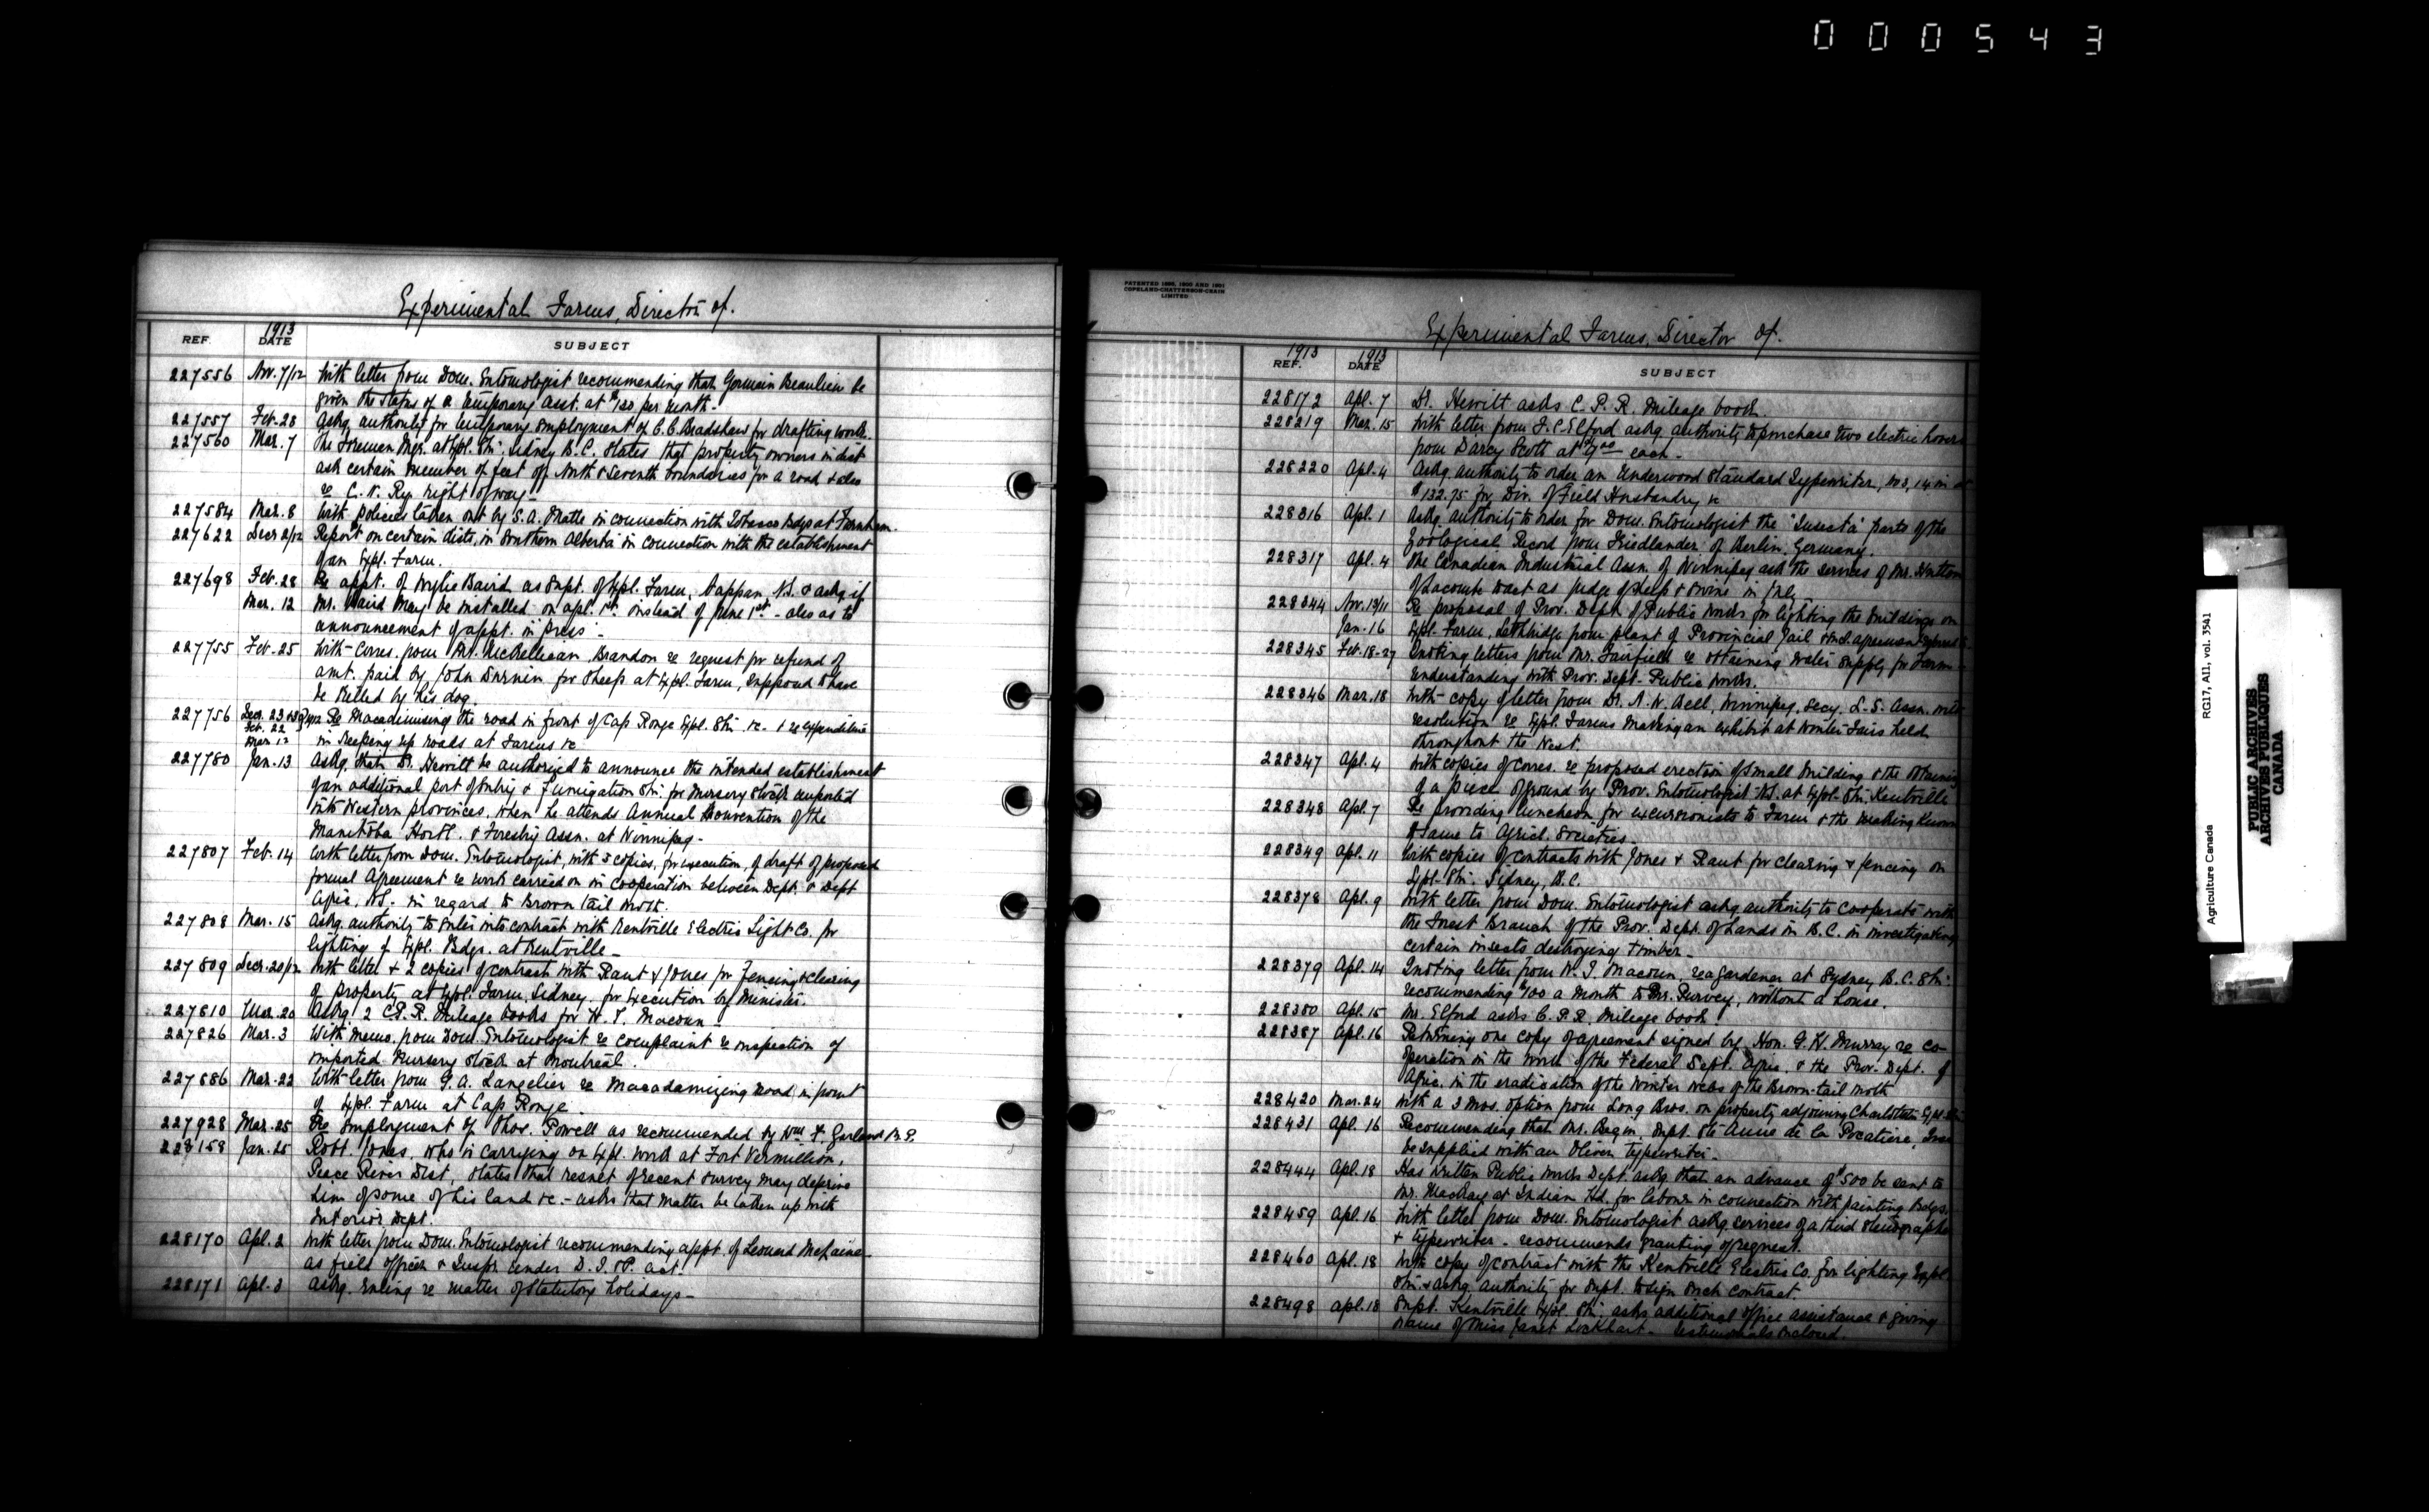 000543
Experimental Farms, Director of.
REF. 1913 DATE SUBJECT
227556 Nov. 7/12 With letter from Dom. Entomologist recommending that Germain Beaulieu be
given the status of a temporary asst. at $120 per month -
227557 Feb. 28 Askg. authority for temporary employment of C.C. Bradshaw for drafting work.
227560 Mar. 7 The Foreman Mgr. at Expl. Stn. Sidney B.C. states that property owners in dist.
ask certain number of feet off North & Seventh boundaries for a road & also
re C. N. Ry. right of way -
227584 Mar. 8 With policies taken out by S.A. in connection with Tobacco Bdgs at Farnham.
227622 Decr 2/12 Report on certain dists, in Southern Alberta in connection with the establishment
of an Expl. Farm.
227698 Feb. 28 Re appt. of Wylie Baird as Supt. of Expl. Farm, Nappan N.S. & askg if
Mar. 12 Mr. Baird may be installed on Apl. 1st instead of June 1st - also as to
announcement of appt. in press -
227755 Feb. 25 With corres. from Mr. McKillican, Brandon re request for refund of
amt. paid by John for sheep at Expl. Farm, supposed to have
be killed by his dog.
227756 Decr. 23 1912 Re Macadimising the road in front of Cap Rouge Expl. Stn. &c. & re expenditure
Feb. 22
Mar. 12 in keeping up roads at Farms &c
227780 Jan. 13 Askg. that Dr. Hewitt be authorized to announce the intended establishment
of an additional port of entry & fumigation Stn. for nursery stock imported
into Western provinces, when he attends Annual Convention of the
Manitoba Hortl. & Forestry Assn. at Winnipeg -
227807 Feb. 14 With letter from Dom. Entomologist, with 3 copies, for execution, of draft of proposed
formal Agreement re work carried on in cooperation between Dept. & Dept
Agric, N.S. in regard to Brown tail moth.
227808 Mar. 15 Askg. authority to enter into contract with Kentville Electric Light Co. for
lighting of Expl. Bdgs. at Kentville -
227809 Decr. 20/12 With letter & 2 copies of contract with Raut & Jones for Fencing & clearing
of property at Expl. Farm, Sidney. for Execution by Minister.
227810 Mar. 20 Askg. 2 C.P.R. Mileage books for W. T. Macoun -
227826 Mar. 3 With memo. from Dom. Entomologist re complaint re inspection of
imported nursery stock at Montreal.
227886 Mar. 22 With letter from G. A. Langelier re Macadamizing road in front
of Expl. Farm at Cap Rouge.
227928 Mar. 25 Re employment of Thos. Powell as recommended by Wm F. Garland M.P.
228158 Jan. 25 Robt. Jones, who is carrying on Expl. work at Fort Vermillion,
Peace River Dist, states that result of recent survey may deprive
him of some of his land &c. - asks that matter be taken up with
Interior Dept.
228170 Apl. 2 With letter from Dom. Entomologist recommending appt. of Leonard McLaine
as field officer & Inspr. under D. I. & P. act.
228171 Apl. 3 Askg. ruling re matter of Statutory holidays -
PATENTED 1895, 1900 AND 1901
COPELAND-CHATTERSON-CRAIN
LIMITED
Experimental Farms, Director of.
1913 REF. 1913 DATE SUBJECT
228172 Apl. 7 Dr. Hewitt asks C. P. R. Mileage book.
228219 Mar. 15 With letter from F.C. Elford askg. authority to purchase two electric hovers
from Darcy Scott at $9.00 each -
228220 Apl. 4 Askg authority to order an Underwood Standard Typewriter, No 3, 14 in at
$132.75 for Div. of Field Husbandry &c
228316 Apl. 1 Askg. authority to order for Dom. Entomologist the "Insecta" parts of the
Zoological Record from Friedlander of Berlin, Germany.
228317 Apl. 4 The Canadian Industrial Assn. of Winnipeg ask the services of Mr. Hutton
of Lacombe to act as judge of sheep & swine in July
228344 Nov. 13/11 Re proposal of Prov. Dept. of Public Works for lighting the buildings on
Jan. 16 Expl. Farm, Lethbridge from plant of Provincial Jail & incl. agreement
228345 Feb. 18-27 Quoting letters from Mr. Fairfield re obtaining water supply for Farm -
understanding with Prov. Dept. Public Works.
228346 Mar. 18 With copy of letter from Dr. A. W. Bell, Winnipeg, Secy. L. S. Assn. with
resolution re Expl. Farms making an exhibit at Winter Fairs held
throughout the West.
228347 Apl. 4 With copies of corres. re proposed erection of small building & the obtaining
of a piece of ground by Prov. Entomologist N.S. at Expl. Stn. Kentville
228348 Apl. 7 Re providing luncheon for excursionists to Farm & the making known
of same to Agricl. Societies -
228349 Apl. 11 With copies of contracts with Jones & Raut for clearing & fencing on
Expl. Stn. Sidney, B.C.
228378 Apl. 9 With letter from Dom. Entomologist askg authority to cooperate with
the Forest Branch of the Prov. Dept. of Lands in B.C. in investigating
certain insects destroying timber -
228379 Apl. 14 Quoting letter from W. T. Macoun, re a gardener at Sydney B.C. Stn.
recommending $100 a month to Mr. Purvey, without a house.
228380 Apl. 15 Mr. Elford asks C. P. R. mileage book.
228387 Apl. 16 Returning one copy of agreement signed by Hon. G. H. Murray re co-
operation in the work of the Federal Dept. Agric. & the Prov. Dept. of
Agric. in the eradication of the winter webs of the Brown-tail moth
228420 Mar. 24 With a 3 mos. option from Long Bros. on property adjoining Charlottetn Expl. Stn
228431 Apl. 16 Recommending that Mr. Begin, Supt. Ste Anne de la Pocatiere, Que
be supplied with an Oliver typewriter -
228444 Apl. 18 Has written Public Works Dept. askg that an advance of $500 be sent to
Mr. MacKay at Indian Hd. for labour in connection with painting Bdgs.
228459 Apl. 16 With letter from Dom. Entomologist askg. services of a third stenographer
& typewriter - recommends granting of request.
228460 Apl. 18 With copy of contract with the Kentville Electric Co. for lighting Expl.
Stn. & askg. authority for Supt. to sign such contract.
228498 Apl. 18 Supt. Kentville Expl. Stn. asks additional office assistance & giving
name of Miss Janet Lockhart - testimonials enclosed.
Agriculture Canada RG17, AII, vol. 3541
PUBLIC ARCHIVES
ARCHIVES PUBLIQUES
CANADA